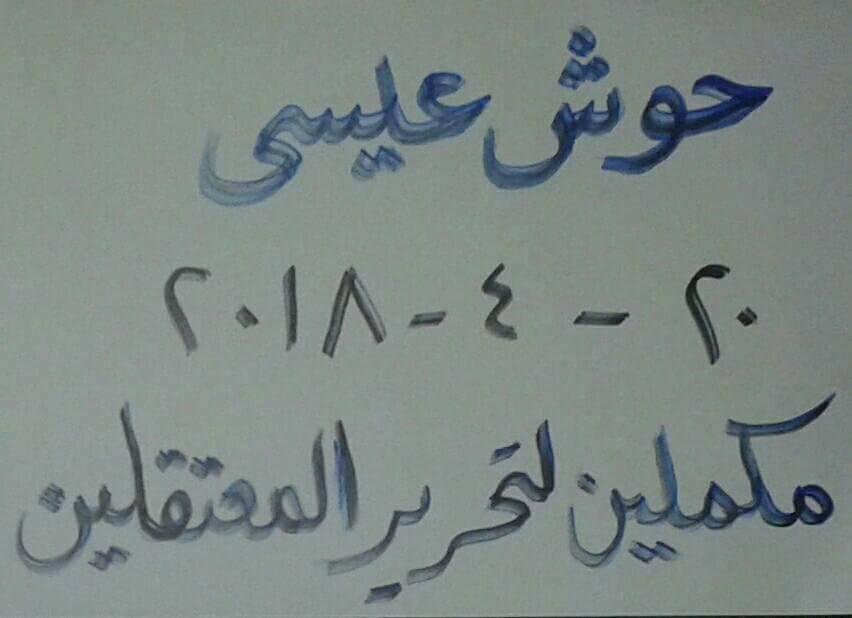 حوش عيسى
٢٠ - ٤ - ٢٠١٨
مكملين لتحرير المعتقلين